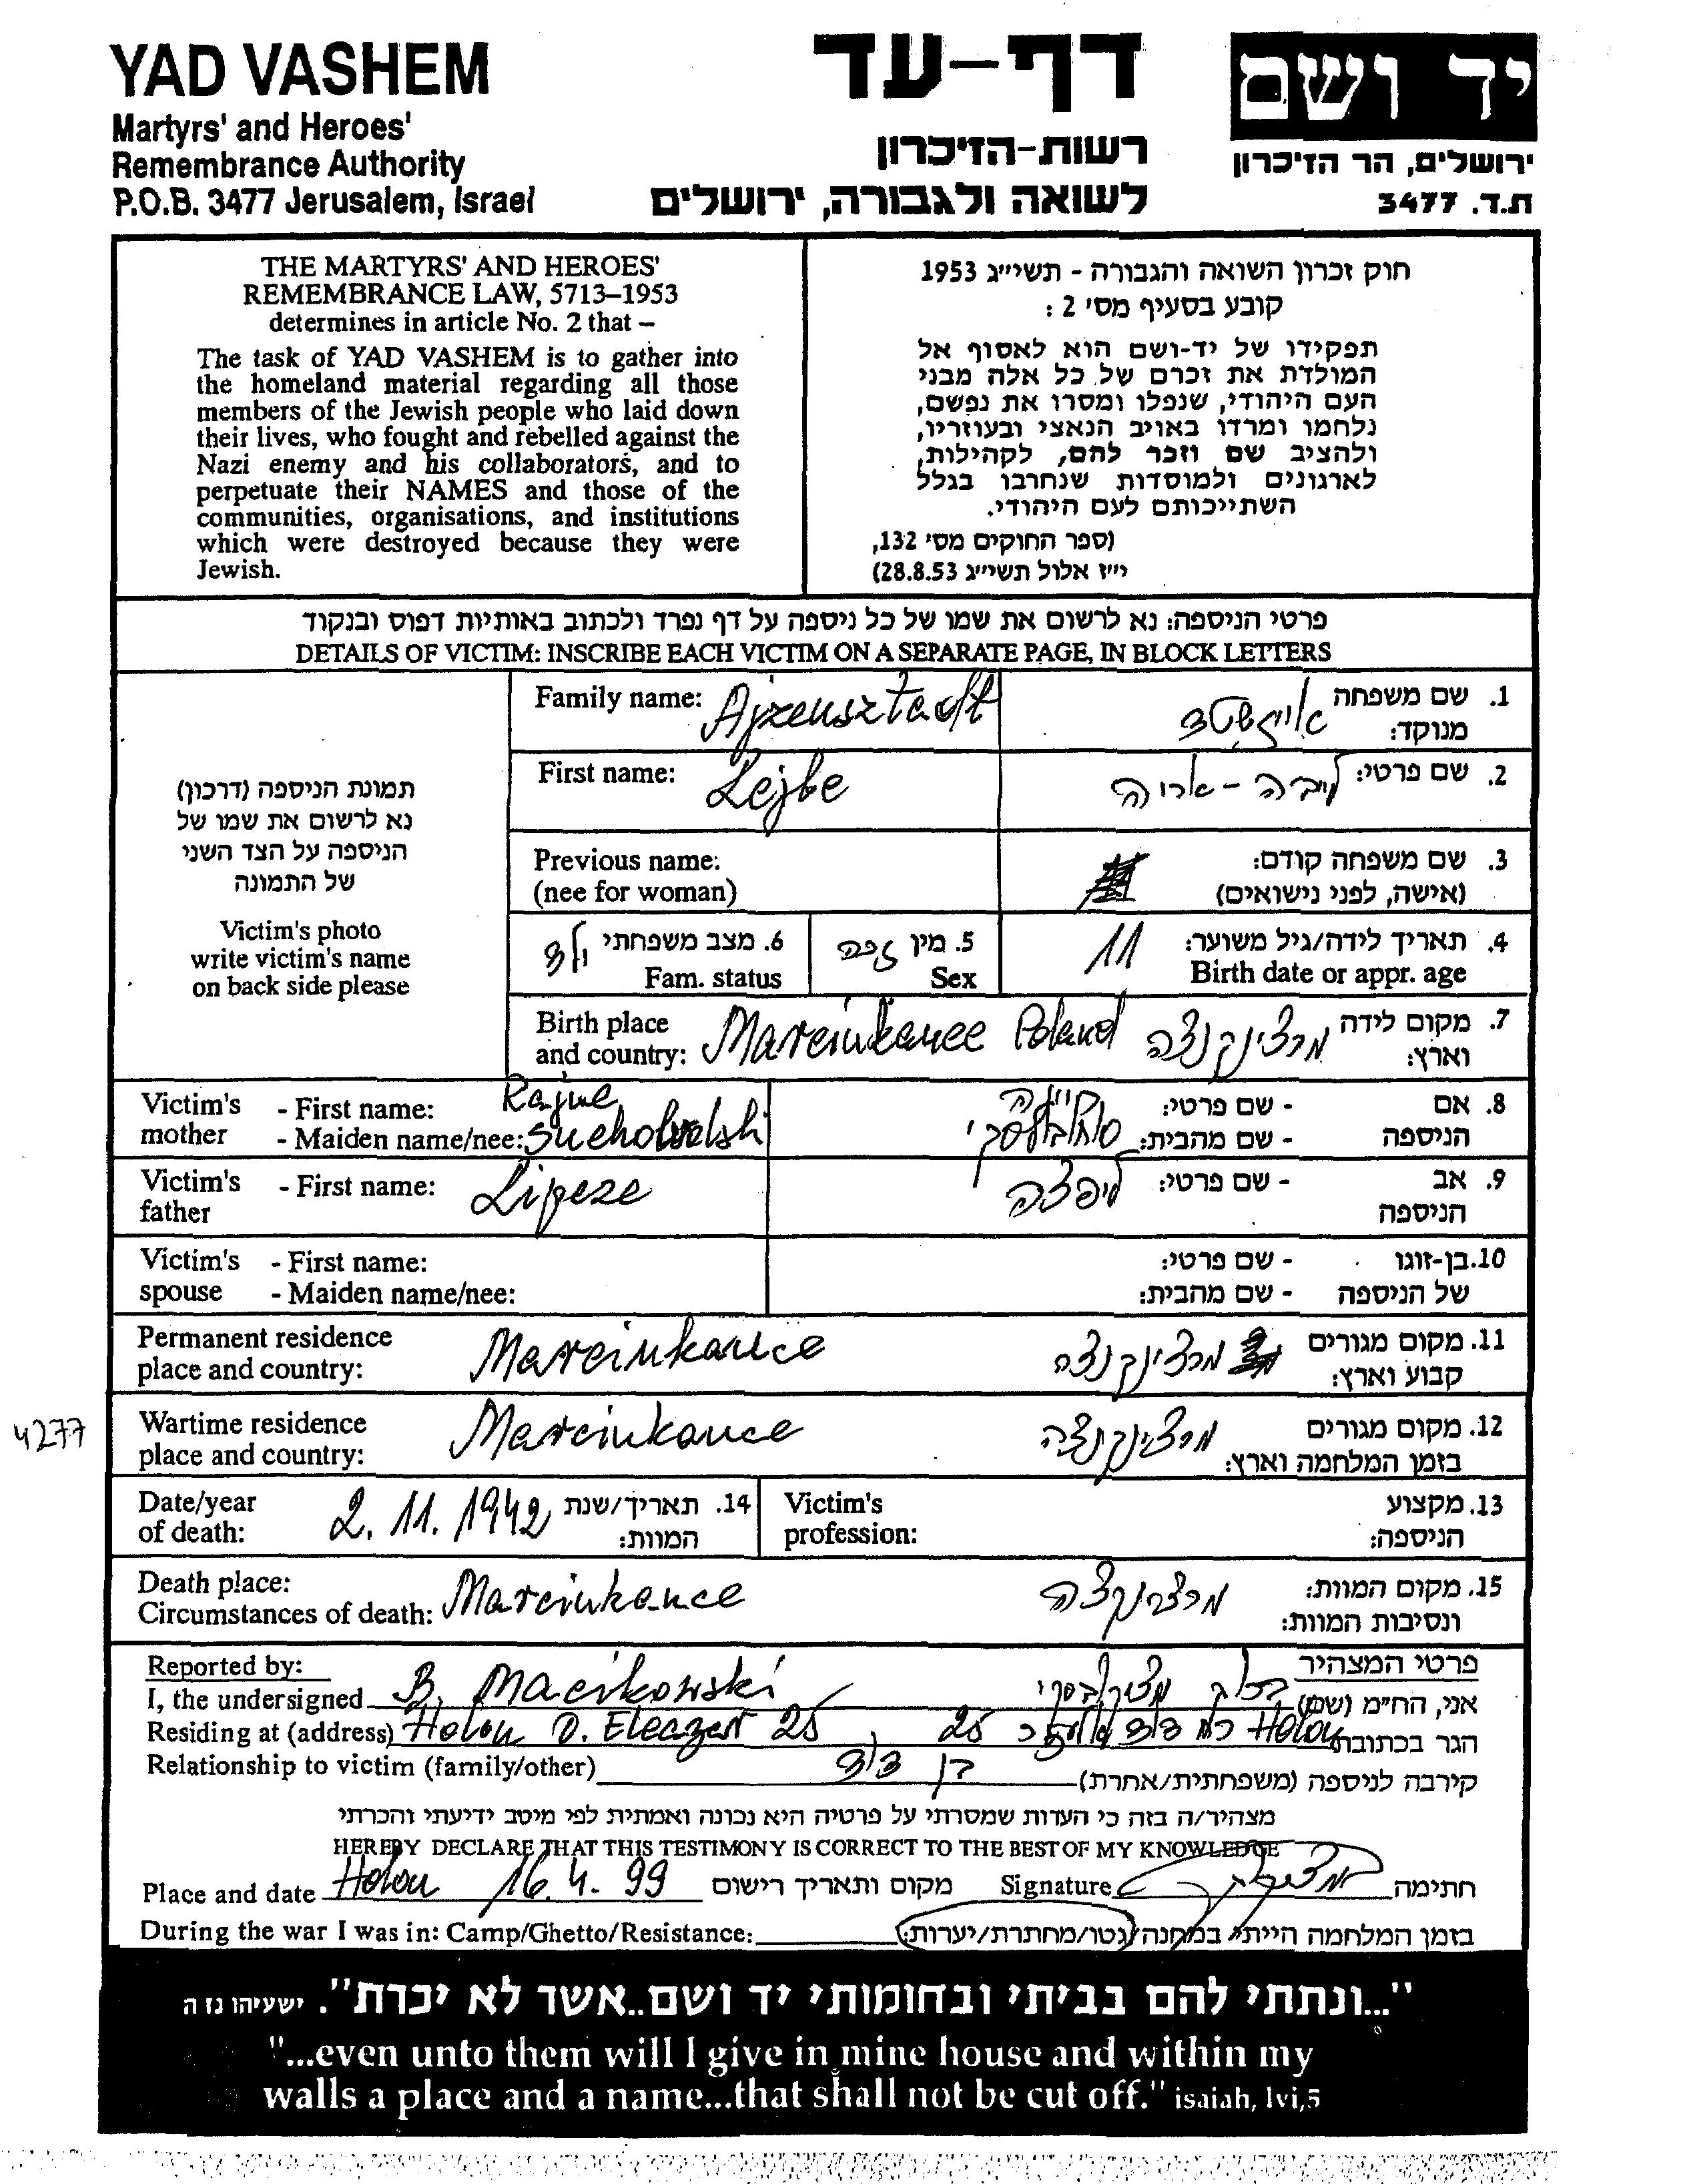 YAD VASHEM
Martyrs' and Heroes'
Remembrance Authority
P.O.B. 3477 Jerusalem, Israel
דף-עד
רשות-הזיכרון
לשואה ולגבורה, ירושלים
יד ושם
ירושלים, הר הזיכרון
ת.ד. 3477
THE MARTYRS' AND HEROES'
REMEMBRANCE LAW, 5713–1953
determines in article No. 2 that –
The task of YAD VASHEM is to gather into
the homeland material regarding all those
members of the Jewish people who laid down
their lives, who fought and rebelled against the
Nazi enemy and his collaborators, and to
perpetuate their NAMES and those of the
communities, organisations, and institutions
which were destroyed because they were
Jewish.
חוק זכרון השואה והגבורה - תשי״ג 1953
קובע בסעיף מס׳ 2 :
תפקידו של יד-ושם הוא לאסוף אל
המולדת את זכרם של כל אלה מבני
העם היהודי, שנפלו ומסרו את נפשם,
נלחמו ומרדו באויב הנאצי ובעוזריו,
ולהציב שם וזכר להם, לקהילות,
לארגונים ולמוסדות שנחרבו בגלל
השתייכותם לעם היהודי.
(ספר החוקים מס׳ 132,
י״ז אלול תשי״ג 28.8.53)
פרטי הניספה: נא לרשום את שמו של כל ניספה על דף נפרד ולכתוב באותיות דפוס ובנקוד
DETAILS OF VICTIM: INSCRIBE EACH VICTIM ON A SEPARATE PAGE, IN BLOCK LETTERS
תמונת הניספה (דרכון)
נא לרשום את שמו של
הניספה על הצד השני
של התמונה
Victim's photo
write victim's name
on back side please
Family name: Ajzensztadt
1. שם משפחה מנוקד: אייזנשטד
First name: Lejbe
2. שם פרטי: לייבה - אריה
Previous name:
(nee for woman)
3. שם משפחה קודם:
(אישה, לפני נישואים)
4. תאריך לידה/גיל משוער: 11
Birth date or appr. age
5. מין זכר
Sex
6. מצב משפחתי ילד
Fam. status
Birth place
and country: Marcinkance Poland
7. מקום לידה וארץ: מרצינקנצה
Victim's mother - First name: Rajne
- Maiden name/nee:
8. אם הניספה - שם פרטי:
- שם מהבית: סוחובולסקי
Victim's father - First name: Lipcze
9. אב הניספה - שם פרטי: ליפצה
Victim's spouse - First name:
- Maiden name/nee:
10. בן-זוגו של הניספה - שם פרטי:
- שם מהבית:
Permanent residence
place and country: Marcinkance
11. מקום מגורים קבוע וארץ: מרצינקנצה
4277
Wartime residence
place and country: Marcinkance
12. מקום מגורים בזמן המלחמה וארץ: מרצינקנצה
Date/year
of death: 2. 11. 1942
14. תאריך/שנת המוות:
Victim's
profession:
13. מקצוע הניספה:
Death place:
Circumstances of death: Marcinkance
15. מקום המוות: מרצינקנצה
ונסיבות המוות:
Reported by:
פרטי המצהיר
I, the undersigned B. Macikowski
אני, הח״מ (שם)
Residing at (address) Holon D. Eleazar 25
הגר בכתובת Holon רח דוד אלעזר 25
Relationship to victim (family/other) בן דוד
קירבה לניספה (משפחתית/אחרת)
מצהיר/ה בזה כי העדות שמסרתי על פרטיה היא נכונה ואמתית לפי מיטב ידיעתי והכרתי
HEREBY DECLARE THAT THIS TESTIMONY IS CORRECT TO THE BEST OF MY KNOWLEDGE
Place and date Holon 16. 4. 99 מקום ותאריך רישום
Signature חתימה
During the war I was in: Camp/Ghetto/Resistance:
בזמן המלחמה הייתי במחנה/גטו/מחתרת/יערות:
"...ונתתי להם בביתי ובחומותי יד ושם..אשר לא יכרת". ישעיהו נו ה
"...even unto them will I give in mine house and within my
walls a place and a name...that shall not be cut off." isaiah, lvi,5